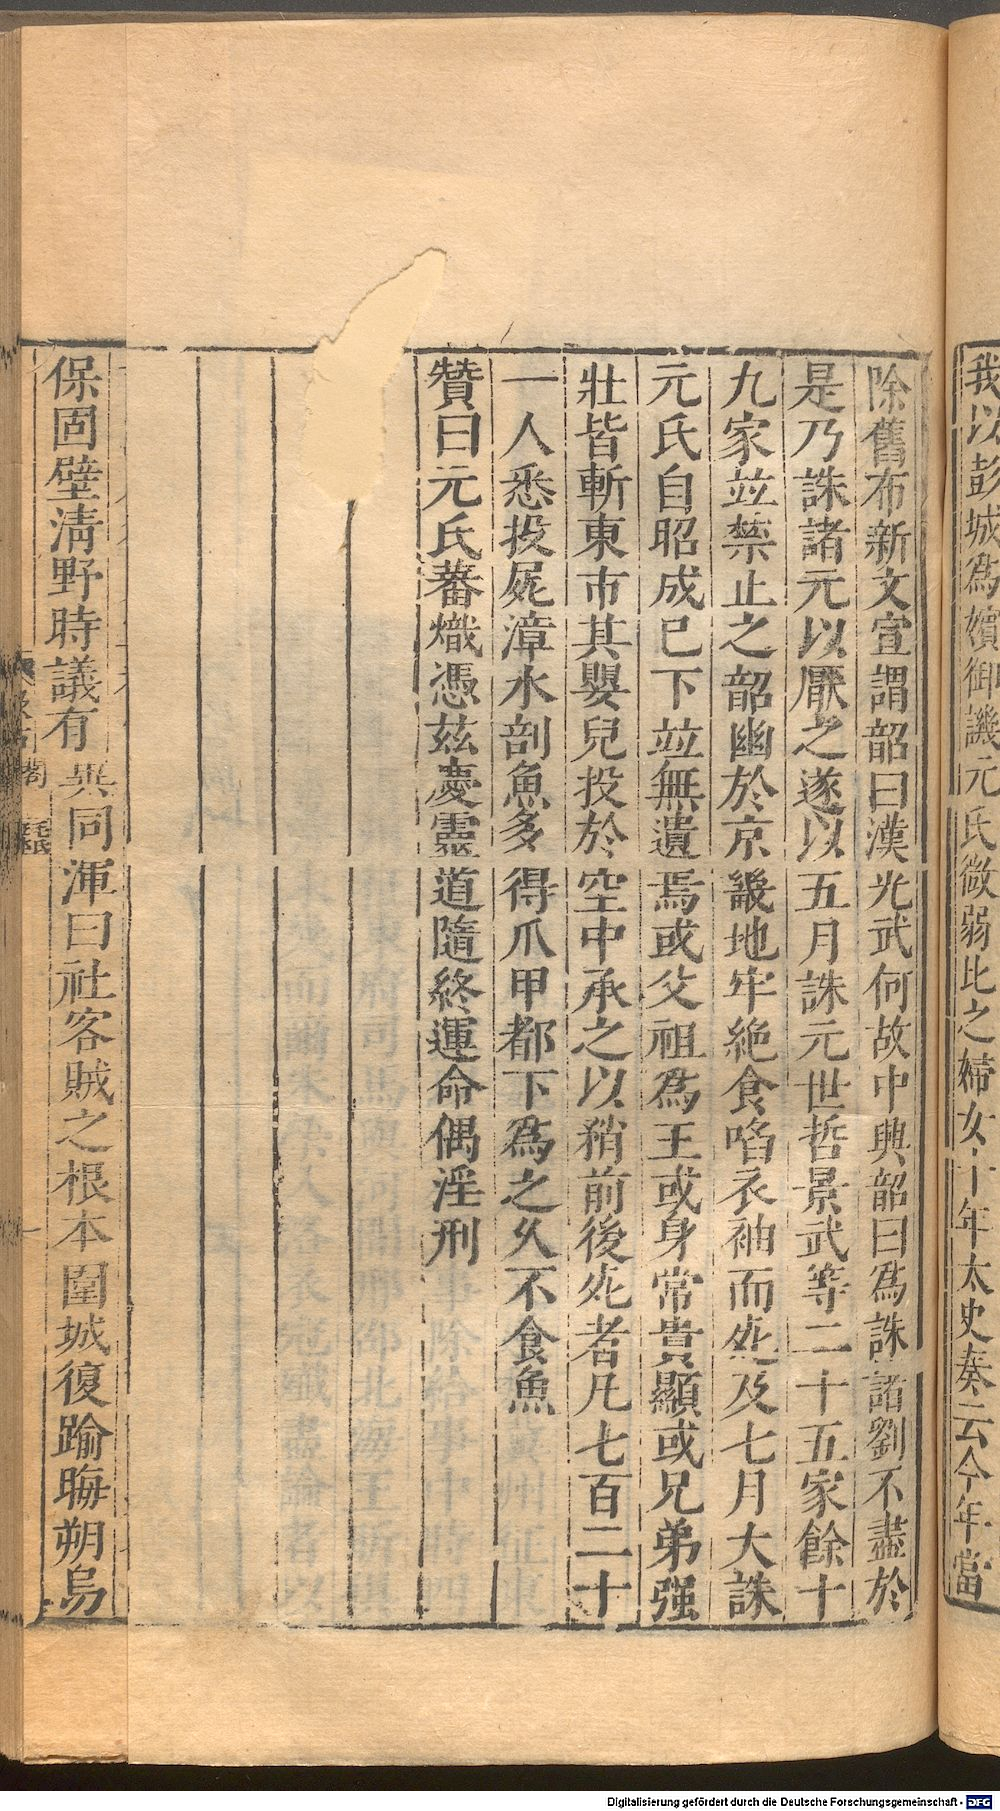 我以彭城爲嬪御譏元氏微弱比之婦女十年太史奏云今年當
除舊布新文宣謂韶曰漢光武何故中興韶曰爲誅諸劉不盡於
是乃誅諸元以厭之遂以五月誅元世哲景武等二十五家餘十
九家並禁止之韶幽於京畿地牢絶食啗衣袖而死及七月大誅
元氏自昭成已下並無遺焉或父祖爲王或身常貴顯或兄弟强
壯皆斬東市其嬰兒投於空中承之以矟前後死者凡七百二十
一人悉投屍漳水剖魚多得爪甲都下爲之久不食魚
贊曰元氏蕃熾憑茲慶靈道隨終運命偶淫刑
保固壁淸野時議有異同渾曰社客賊之根本圍城復踰晦朔烏
Digitalisierung gefördert durch die Deutsche Forschungsgemeinschaft - DFG